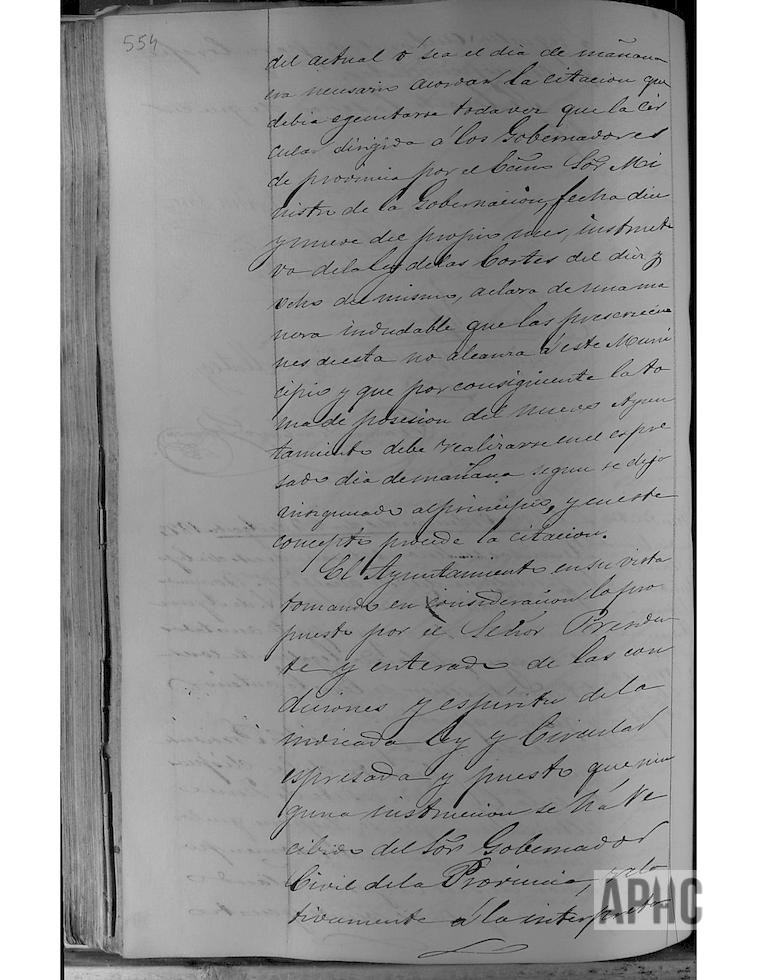 554
del actual ó sea el dia de mañana
era necesario acordar la citacion que
debia egecutarse toda vez que la cir
cular dirigida á los Gobernadores
de provincia por el Ecmo Sôr Mi
nistro de la Gobernacion, fecha diez
y nueve del propio mes, instructi
vo de la ley de las Cortes del diez y
ocho del mismo, aclara de una ma
nera indudable que las prescricio
nes de esta no alcanza á este Muni
cipio y que por consiguiente la to
ma de posesion del nuevo Ayun
tamiento debe realizarse en el espre
sado dia de mañana segun se dejó
insignuado al principio, y en este
concepto procede la citacion.
El Ayuntamiento en su vista
tomando en consideracion lo pro
puesto por el Señor Presiden
te y enterado de las con
diciones y espíritu de la
indicada ley y Circular
espresada y puesto que nin
guna instruccion se há re
cibido del Sôr Gobernador
Civil de la Provincia, rela
tivamente á la interpreta
APHC